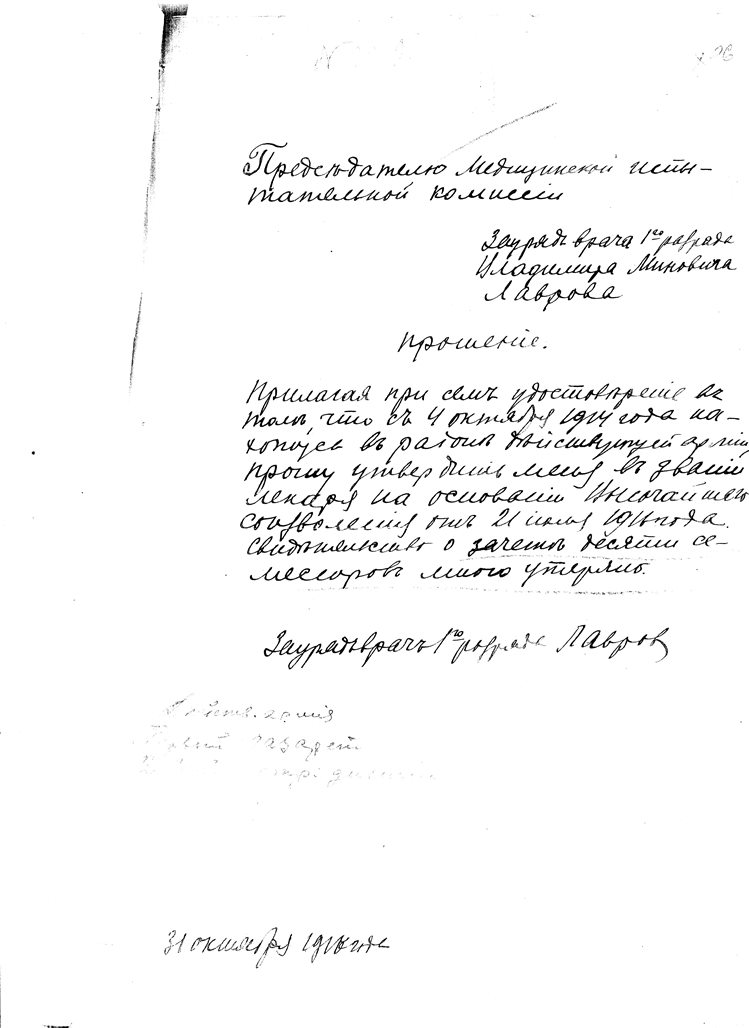 Председателю Медицинской испы-
тательной комиссіи
Зауряд врача 1го разряда
Владимира Миновича
Лаврова
прошеніе.
Прилагая при семъ удостовѣреніе въ
томъ, что съ 4 октября 1914 года на-
хожусь въ районѣ дѣйствующей арміи,
прошу утвердить меня въ званіи
лекаря на основаніи Высочайшаго
соизволенія отъ 21 іюля 1916 года.
Свидѣтельство о зачетѣ десяти се-
местровъ мною утеряно.
Заурядъ врачъ 1го разряда Лавров
армія
лазарет
31 октября 1916 года